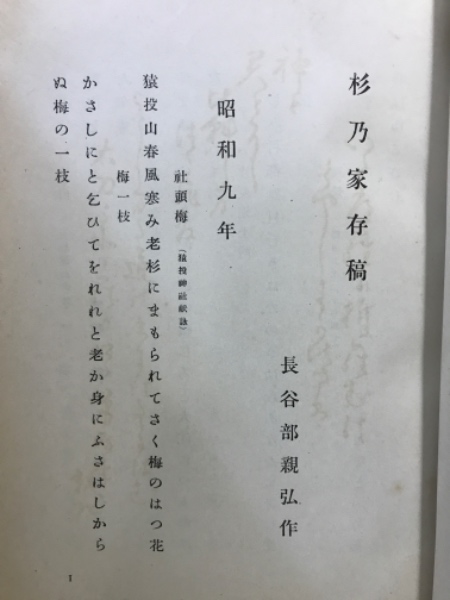 杉乃家存稿
長谷部親弘作
昭和九年
社頭梅(猿投神社献詠)
猿投山春風寒み老杉にまもられてさく梅のはつ花
梅一枝
かさしにと乞ひてをれれと老か身にふさはしから
ぬ梅の一枝
1